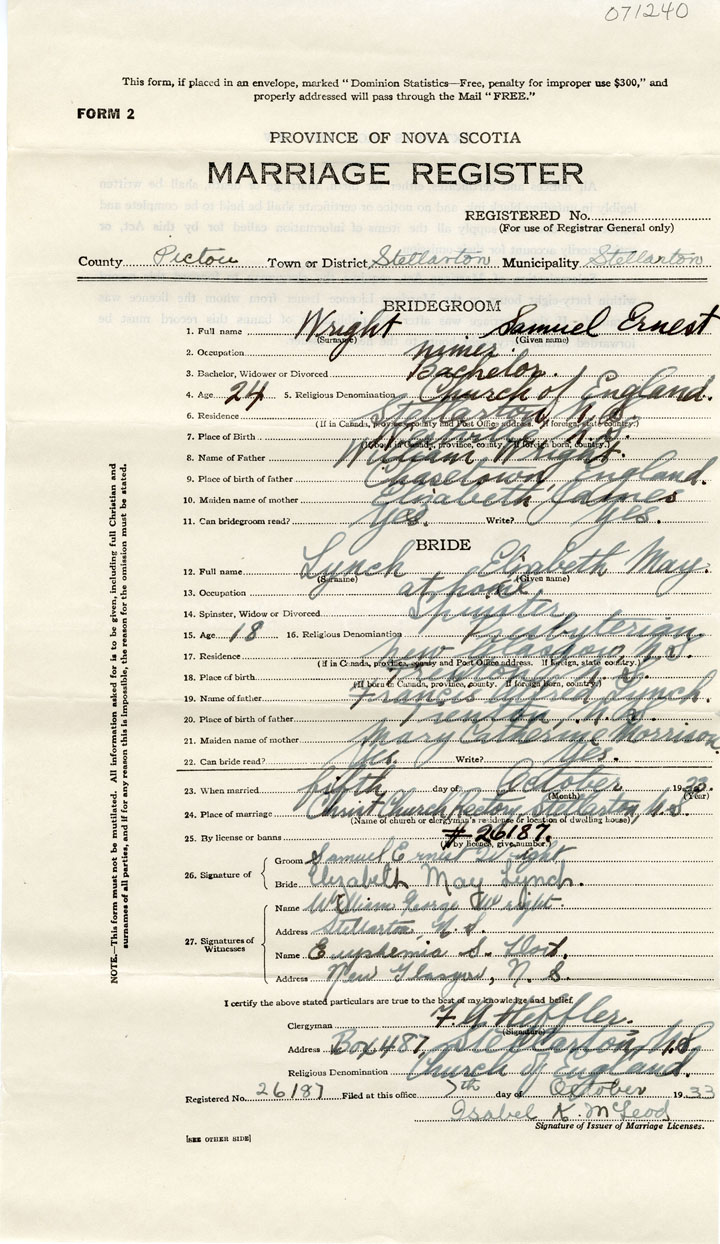 071240
This form, if placed in an envelope, marked "Dominion Statistics—Free, penalty for improper use $300," and
properly addressed will pass through the Mail "FREE."
FORM 2
PROVINCE OF NOVA SCOTIA
MARRIAGE REGISTER
REGISTERED No.
(For use of Registrar General only)
County Pictou Town or District Stellarton Municipality Stellarton
BRIDEGROOM
1. Full name Wright Samuel Ernest
(Surname) (Given name)
2. Occupation miner.
3. Bachelor, Widower or Divorced Bachelor.
4. Age 24 5. Religious Denomination Church of England.
6. Residence Stellarton N.S.
(If in Canada, province, county and Post Office address. If foreign, state country.)
7. Place of Birth N.S.
(If born in Canada, province, county. If foreign born, country.)
8. Name of Father William Wright.
9. Place of birth of father Chasetown England.
10. Maiden name of mother Elizabeth James
11. Can bridegroom read? Yes. Write? Yes.
BRIDE
12. Full name Lynch Elizabeth May.
(Surname) (Given name)
13. Occupation at home
14. Spinster, Widow or Divorced Spinster
15. Age 18 16. Religious Denomination Presbyterian
17. Residence New Glasgow N.S.
(If in Canada, province, county and Post Office address. If foreign, state country.)
18. Place of birth Trenton N.S.
(If born in Canada, province, county. If foreign born, country.)
19. Name of father Francis Lynch.
20. Place of birth of father N.S.
21. Maiden name of mother Mary Catherine Morrison
22. Can bride read? Yes. Write? Yes.
23. When married fifth day of October 1933.
(Month) (Year)
24. Place of marriage Christ Church Rectory Stellarton, N.S.
(Name of church or clergyman's residence or location of dwelling house)
25. By license or banns # 26187.
(If by licence, give number.)
26. Signature of
Groom Samuel Ernest Wright
Bride Elizabeth May Lynch.
27. Signatures of Witnesses
Name William George Wright.
Address Stellarton N.S.
Name Euphemia S.
Address New Glasgow, N.S.
I certify the above stated particulars are true to the best of my knowledge and belief.
Clergyman F. A. Heffler.
(Signature)
Address Box 487 Stellarton N.S
Religious Denomination Church of England.
Registered No. 26187 Filed at this office 7th day of October 1933
Isabel K. McLeod
Signature of Issuer of Marriage Licenses.
[SEE OTHER SIDE]
NOTE.—This form must not be mutilated. All information asked for is to be given, including full Christian and
surnames of all parties, and if for any reason this is impossible, the reason for the omission must be stated.